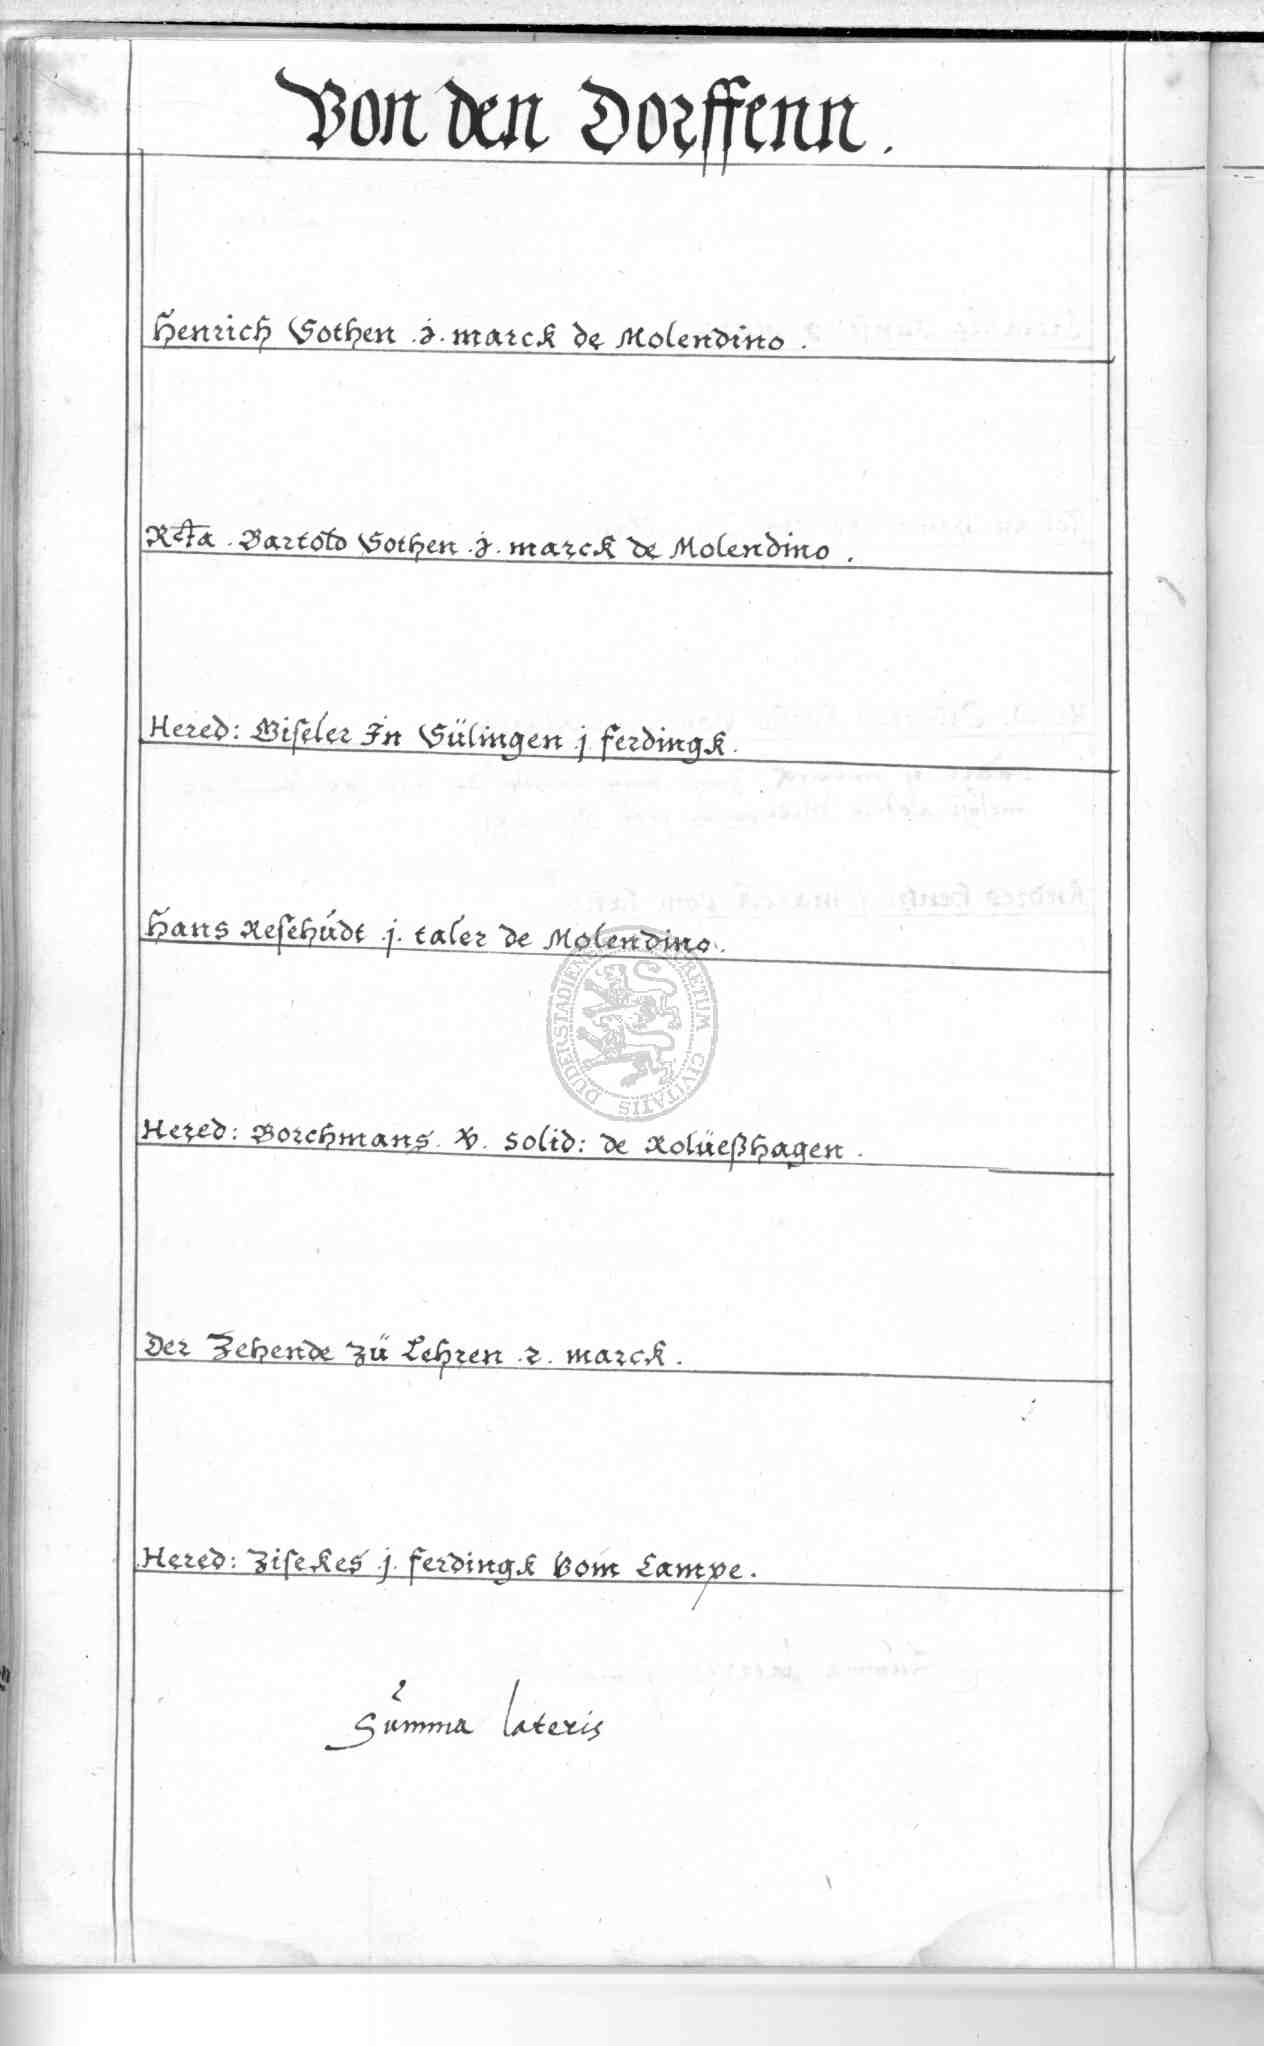 Von den Dorffenn.
Henrich Sothen .j. marck de Molendino .
Rcta . Bartold Sothen .j. marck de Molendino .
Hered: Giseler In Sülingen j ferdingk .
Hans Resehüdt .j. taler de Molendino .
Hered: Borchmans . v . solid: de Rolüeßhagen .
Der Zehende zü Lehren .2. marck .
Hered: Zisekes .j. ferdingk Vom Campe .
Summa lateris
DUDERSTADIENSIS CIVITATIS